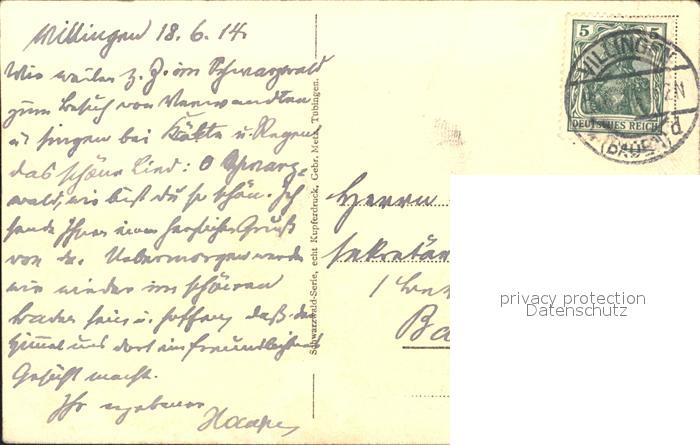 Villingen 18.6.14.
Wir weilen z. Z. im Schwarzwald
zum Besuch von Verwandten
u. singen bei Kälte u. Regen
das schöne Lied: O Schwarz-
wald, wie bist du so schön. Ich
sende Ihnen einen herzlichen Gruß
von da. Uebermorgen werden
wir wieder im schönen
Baden sein u. hoffen, daß der
Himmel uns dort ein freundlicheres
Gesicht macht.
Ihr ergebener
Schwarzwald-Serie, echt Kupferdruck, Gebr. Metz, Tübingen.
5 5
DEUTSCHES REICH
VILLINGEN
(BADEN)
Herrn
Sekretär
Ba
privacy protection
Datenschutz